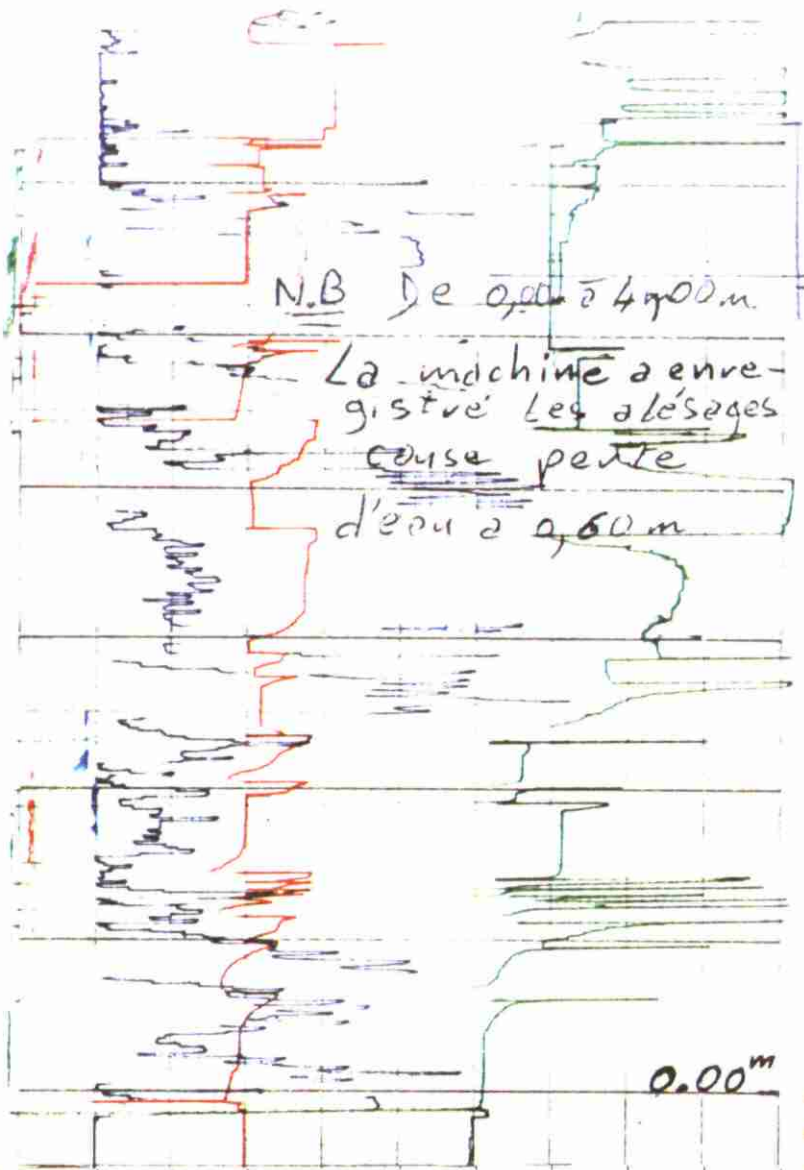 N.B De 0,00 à 4,00 m
La machine a enre-
gistré Les alésages
cause perte
d'eau a 0,60 m
0.00 m